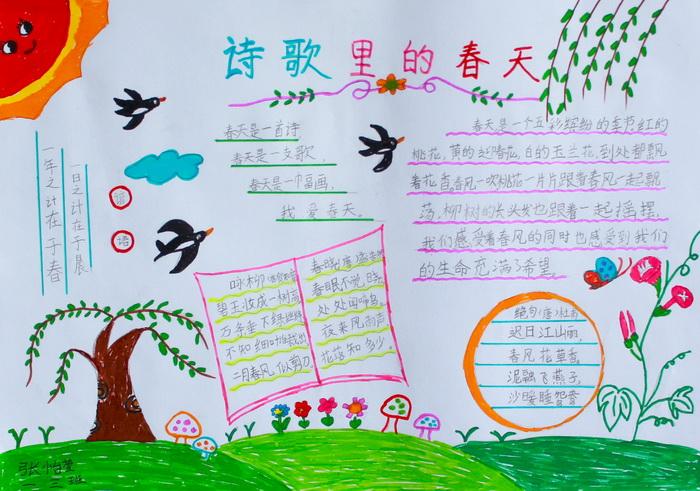 诗歌里的春天
春天是一首诗
春天是一支歌,
春天是一幅画,
我爱春天。
春天是一个五彩缤纷的季节,红的
桃花,黄的迎春花,白的玉兰花,到处都飘
着花香。春风一吹桃花一片片跟着春风一起飘
荡,柳树的长头发也跟着一起摇摆。
我们感受着春风的同时也感受到我们
的生命充满了希望。
一年之计在于春
一日之计在于晨
谚
语
咏柳
碧玉妆成一树高
万条垂下绿丝绦
不知细叶谁裁出
二月春风似剪刀。
春晓(唐)孟浩然
春眠不觉晓,
处处闻啼鸟。
夜来风雨声
花落知多少
绝句(唐)杜甫
迟日江山丽,
春风花草香。
泥融飞燕子,
沙暖睡鸳鸯
张怡
一三班